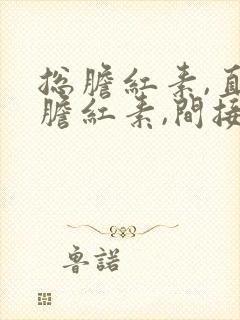 总膽紅素,直
膽紅素,間接
魯諾